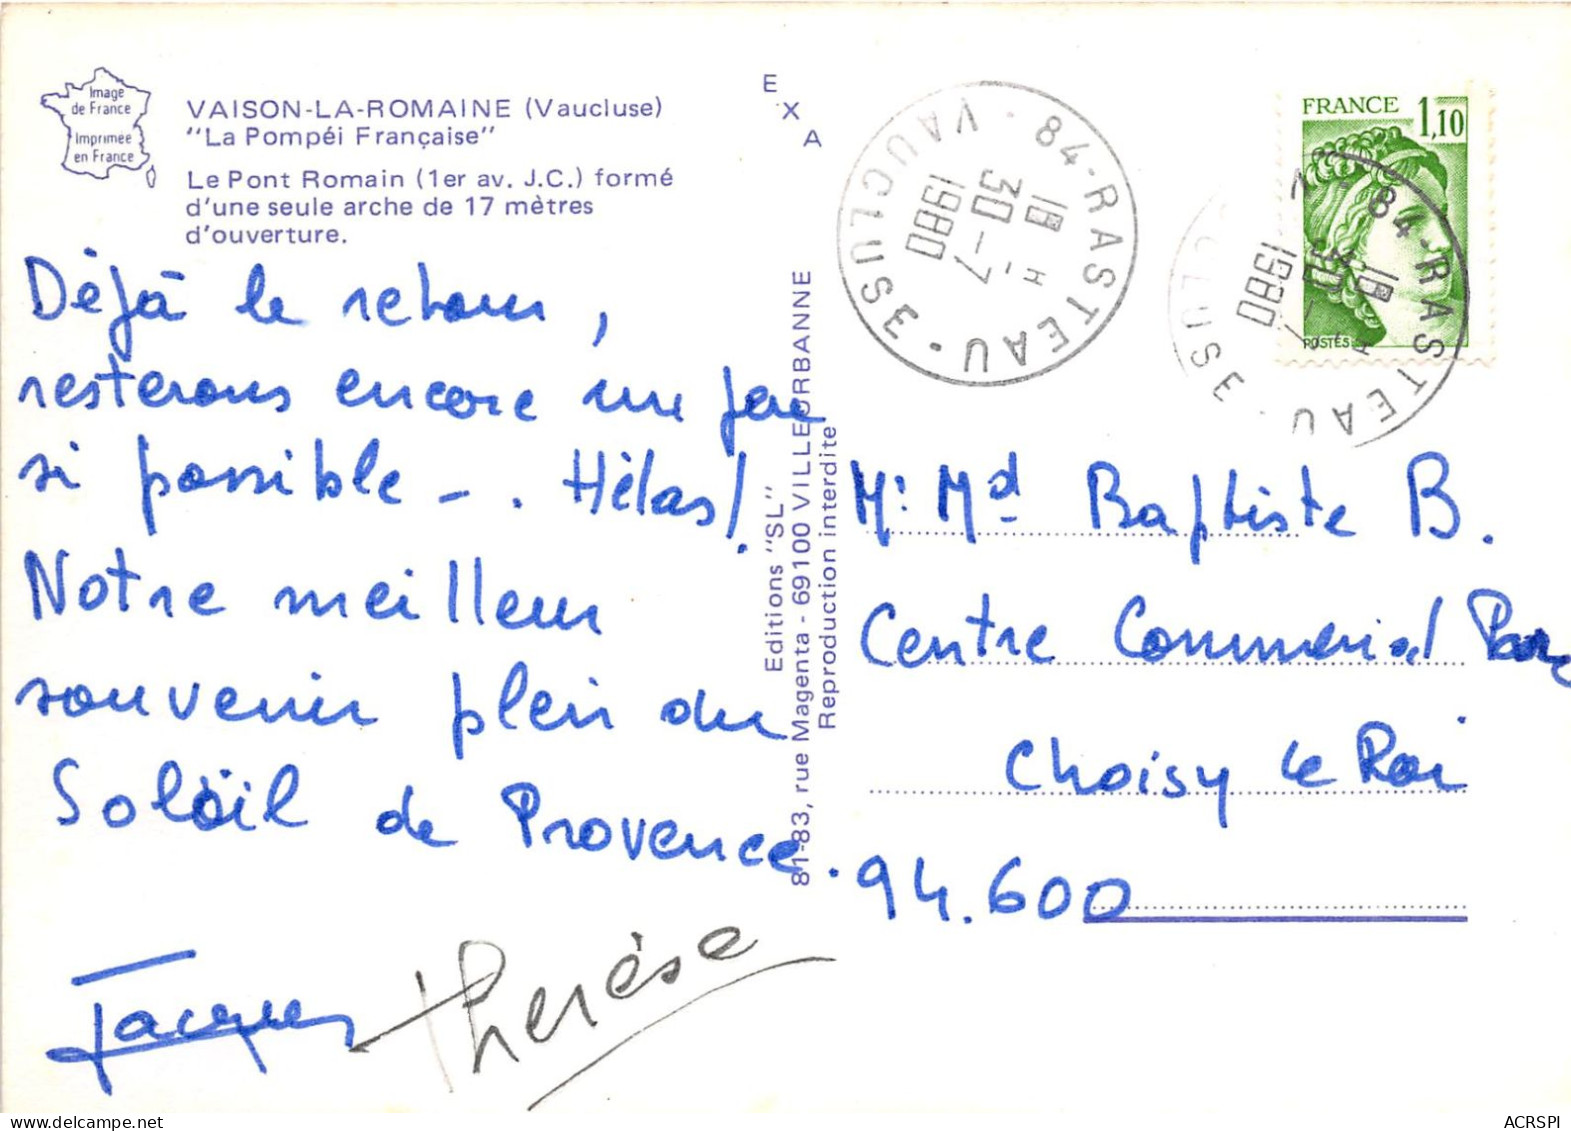 Image
de France
Imprimée
en France
VAISON-LA-ROMAINE (Vaucluse)
"La Pompéi Française"
Le Pont Romain (1er av. J.C.) formé
d'une seule arche de 17 mètres
d'ouverture.
Déjà le retour,
resterons encore un peu
si possible - . Hélas!
Notre meilleur
souvenir plein du
Soleil de Provence.
Jacques Thérèse
EXA
Editions "SL"
81-83, rue Magenta - 69100 VILLEURBANNE
Reproduction interdite
84-RASTEAU - VAUCLUSE
18 H
30-7
1980
FRANCE 1,10
POSTES
84-RASTEAU - VAUCLUSE
18 H
30-7
1980
Mr Md Baptiste B.
Centre Commercial
Choisy le Roi
94.600
delcampe.net
ACRSPI